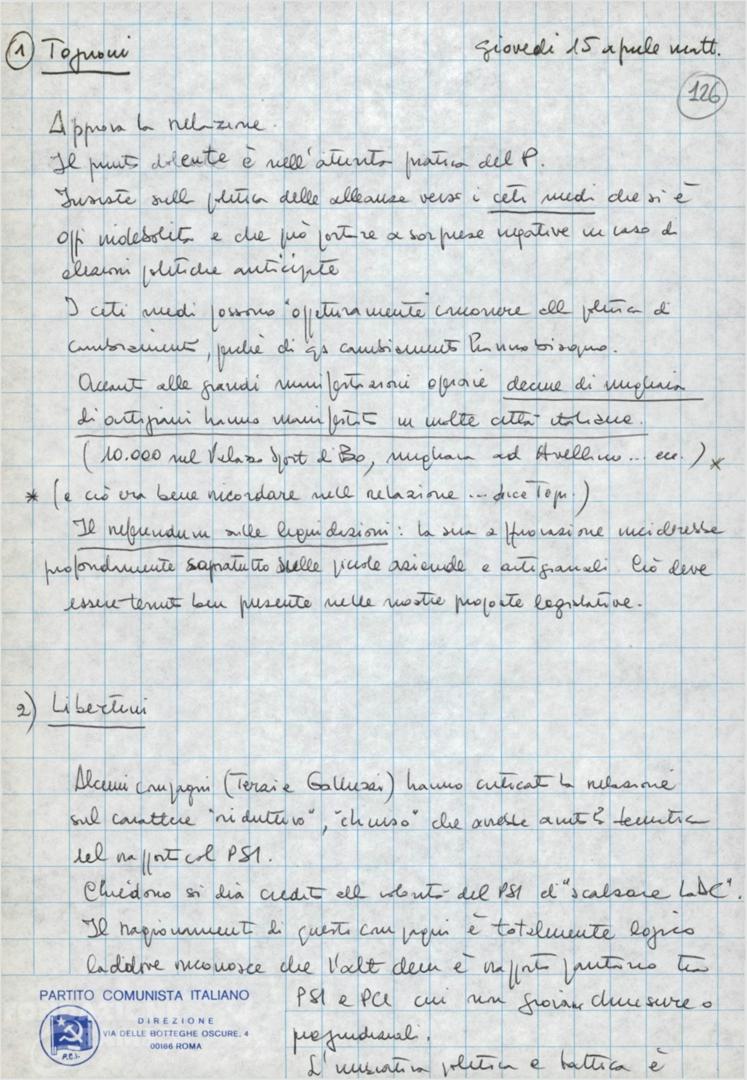 1 Tognoni
giovedì 15 aprile matt.
126
Approva la relazione.
Il punto dolente è nell'attività pratica del P.
Insiste sulla politica delle alleanze verso i ceti medi che si è
oggi indebolita e che può portare a sorprese negative in caso di
elezioni politiche anticipate
I ceti medi possono "oggettivamente" concorrere alla politica di
cambiamento, perché di qs cambiamento hanno bisogno.
Accanto alle grandi manifestazioni operaie decine di migliaia
di artigiani hanno manifestato in molte città italiane.
(10.000 nel Palazzo Sport di Bo, migliaia ad Avellino... ecc.) *
* (e ciò era bene ricordare nella relazione ... dice Togn.)
Il referendum sulle liquidazioni: la sua approvazione inciderebbe
profondamente sopratutto sulle piccole aziende e artigianali. Ciò deve
essere tenuto ben presente nelle nostre proposte legislative.
2) Libertini
Alcuni compagni (Terzi e Galluzzi) hanno criticato la relazione
sul carattere "riduttivo", "chiuso" che avrebbe avuto la tematica
del rapporto col PSI.
Chiedono si dia credito alla volontà del PSI di "scalzare la DC".
Il ragionamento di questi compagni è totalmente logico
laddove riconosce che l'alt dem è rapporto paritario tra
PSI e PCI cui non giovano chiusure o
pregiudiziali.
L'iniziativa politica e tattica è
PARTITO COMUNISTA ITALIANO
DIREZIONE
VIA DELLE BOTTEGHE OSCURE, 4
00186 ROMA
P.C.I.